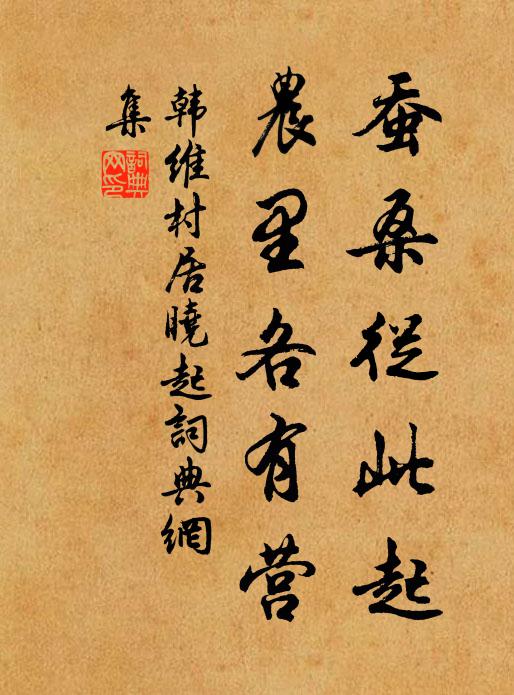 蚕桑從此起
農里各有营
韩維村居曉起詞典網
集
詞典
网印